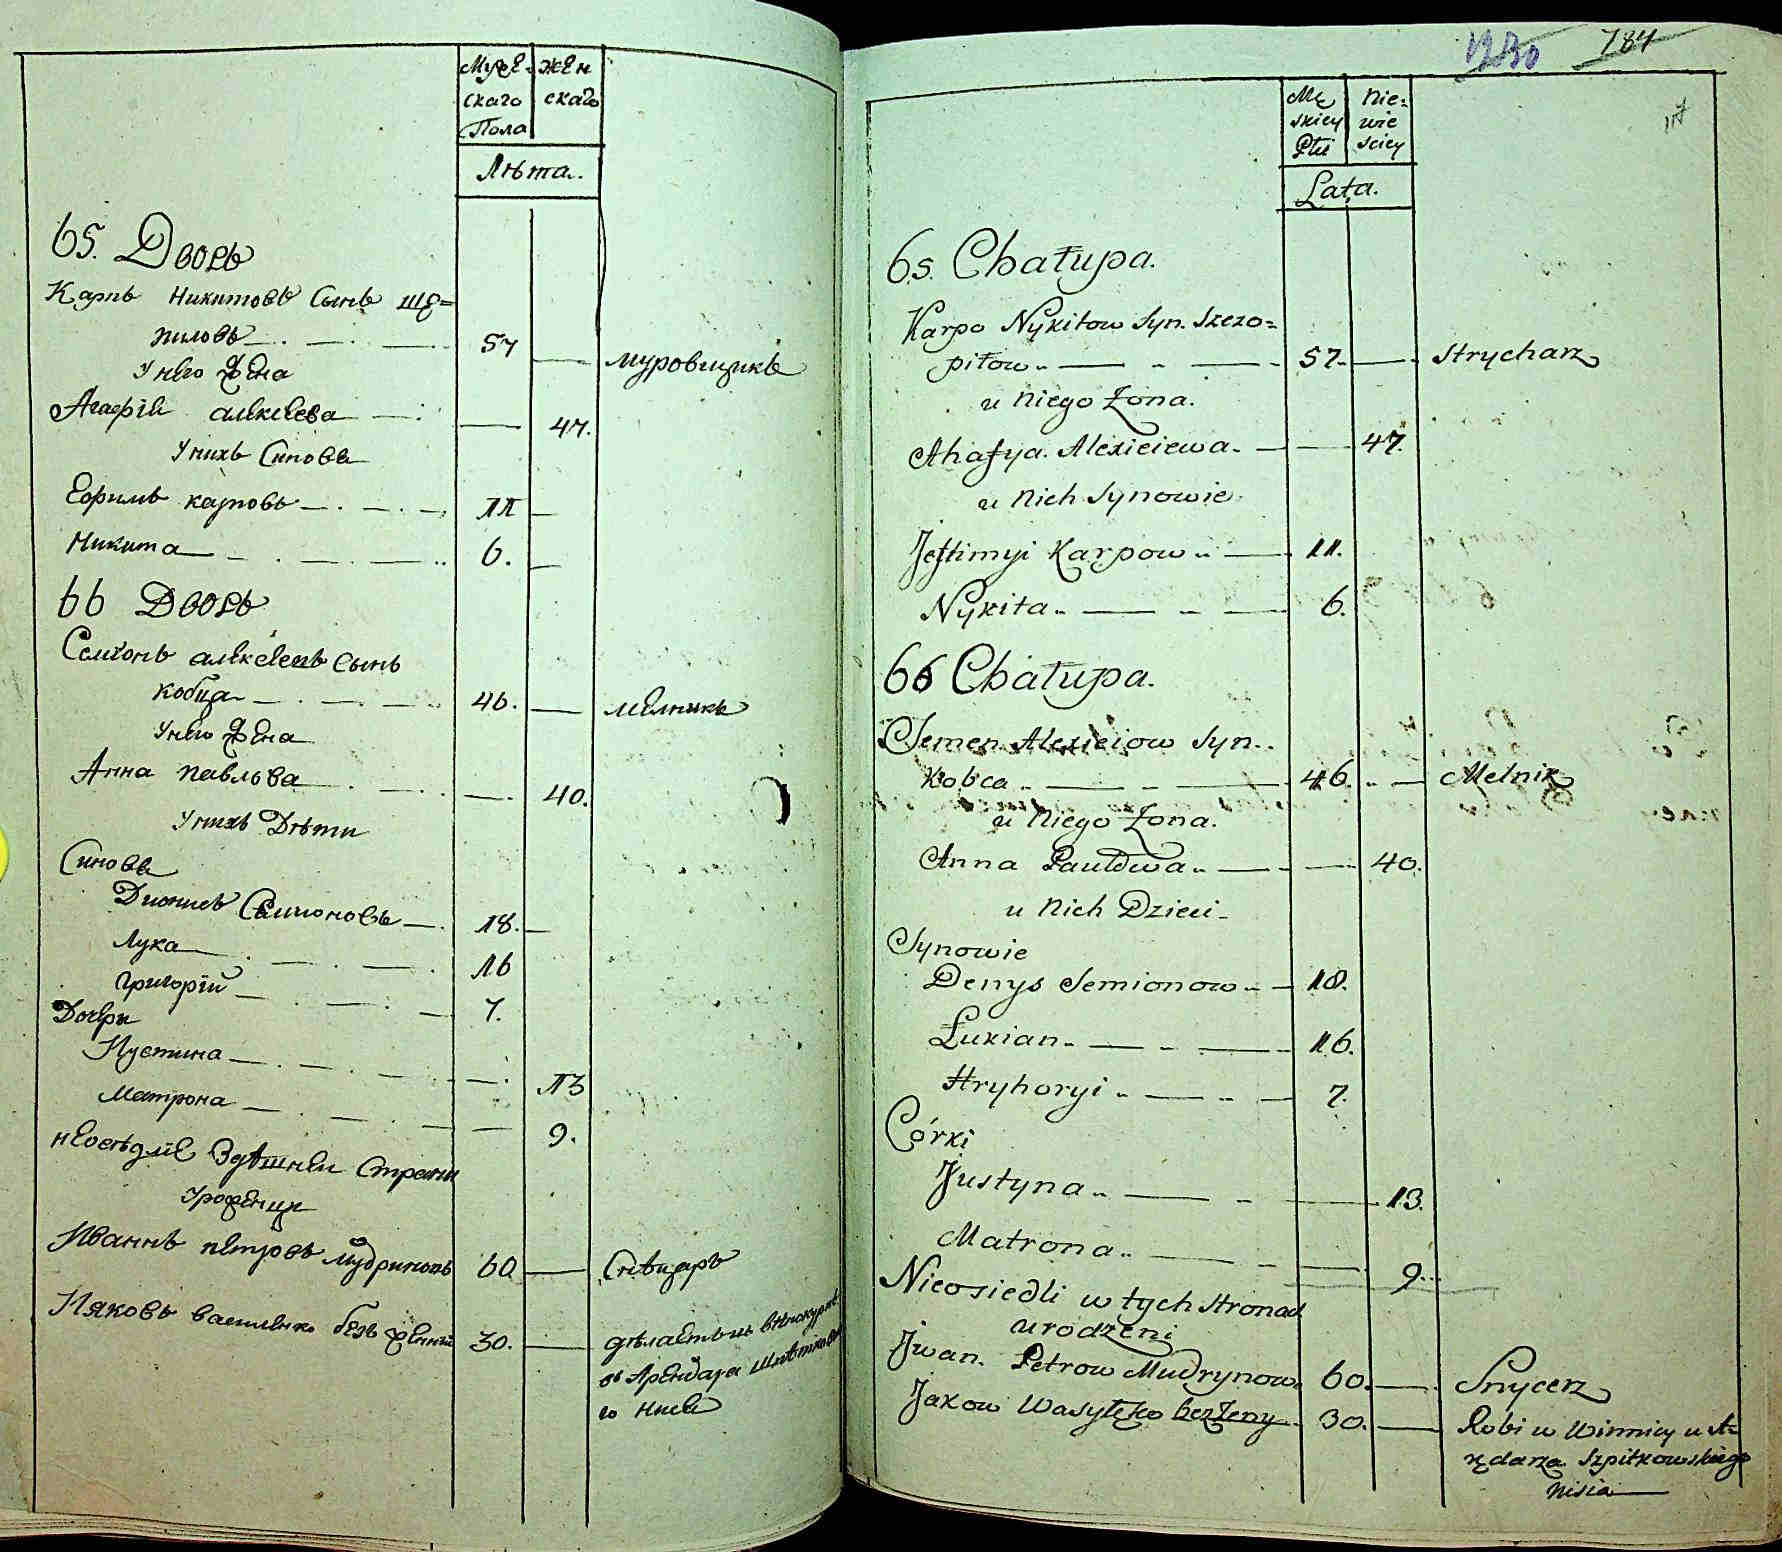 Муже-
скаго
Пола
жен
скаго
Лѣта.
65. Дворъ
Карпъ Никитовъ Сынъ ще=
пиловъ
57
муровщикъ
У него Жена
Агафія алексеева
47.
У нихъ Синове
Ефимъ карповъ
11
Никита
6.
66 Дворъ
Семіонъ алексеевъ Сынъ
кобца
46.
мелникъ
У него Жена
Анна павлова
40.
У нихъ Дѣти
Синове
Дионисъ Семионовъ
18.
Лука
16
Григорій
7.
Дочери
Иустина
13
Матрона
9.
неоседліе Здѣшней Страни
Уроженци
Иваннъ петровъ мудриновъ
60
Сницаръ
Ияковъ василенко безъ женни
30.
дѣлаетъ въ винокурне
в Арендара шпѣтковско
го нисея
1230
784
117
Mę
skiey
Płci
nie=
wie
sciey
Lata.
65. Chałupa.
Karpo Nykitow Syn. Szczo=
piłow
57.
Strycharz
u Niego Żona.
Ahafya. Alexieiewa.
47.
u Nich Synowie.
Jeftimyi Karpow
11.
Nykita
6.
66 Chałupa.
Semen Alexieiow Syn.
Kobca
46.
Melnik
u Niego Żona.
Anna Paułowa
40.
u Nich Dzieci
Synowie
Denys Semionow
18.
Łukian
16.
Hryhoryi
7.
Córki
Justyna
13.
Matrona
9.
Nieosiedli w tych Stronach
urodzeni
Jwan. Petrow Mudrynow
60.
Snycerz
Jakow Wasylko bez Żeny
30.
Robi w Winnicy u A-
rędarza Szpitkowskiego
Nisia